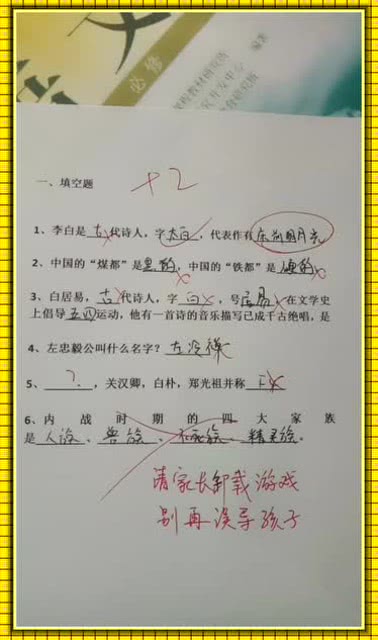 文
必修
课程教材研究所
编著
一、填空题
+2
1、李白是古代诗人，字太白，代表作有床前明月光
2、中国的“煤都”是黑的，中国的“铁都”是硬的。
3、白居易，古代诗人，字白，号居易。在文学史
上倡导五四运动，他有一首诗的音乐描写已成千古绝唱，是
4、左忠毅公叫什么名字？左冷禅
5、？，关汉卿，白朴，郑光祖并称
6、内战时期的四大家族
是人族、兽族、不死族、精灵族。
请家长卸载游戏
别再误导孩子